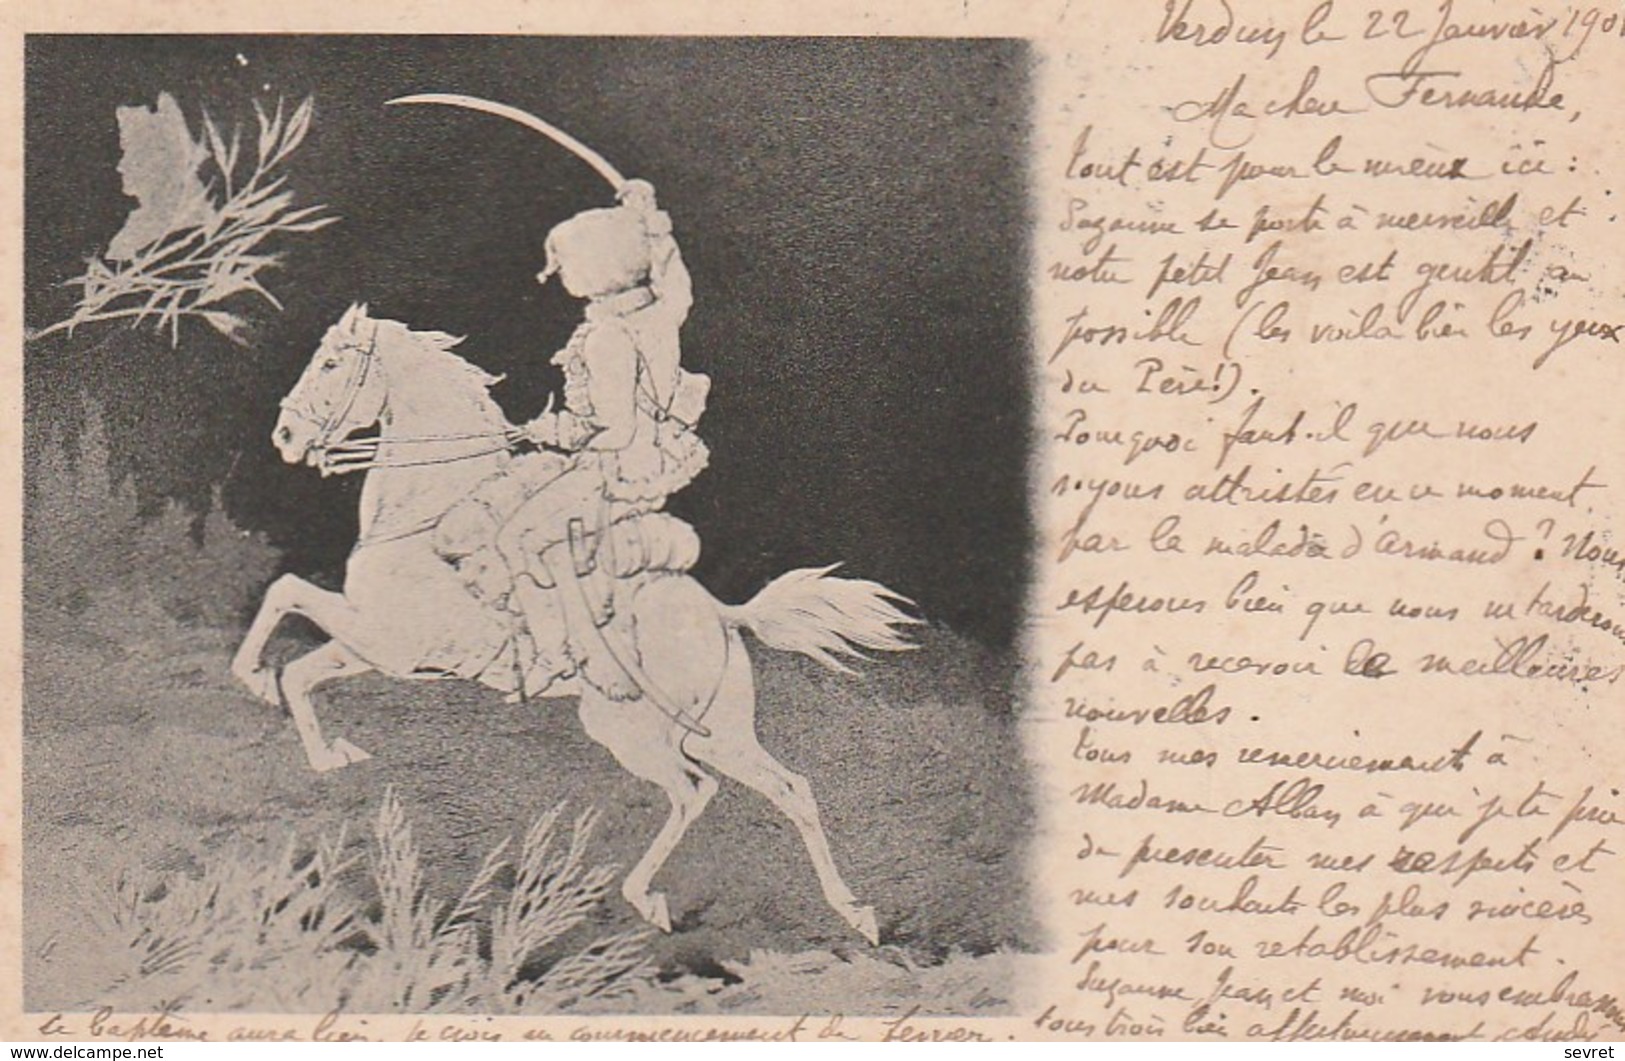 Verdun le 22 Janvier 1901
Ma chère Fernande,
tout est pour le mieux ici :
Suzanne se porte à merveille et
notre petit Jean est gentil au
possible (les voilà bien les yeux
du Père!).
Pourquoi faut-il que nous
soyons attristés en ce moment
par la maladie d'Armand ? Nous
esperons bien que nous ne tarderons
pas à recevoir de meilleures
nouvelles.
Tous mes remerciements à
Madame Alban à qui je te prie
de presenter mes respects et
mes souhaits les plus sincères
pour son retablissement.
Suzanne, Jean et moi vous embrassons
tous trois bien affectueusement, André
Le baptême aura lieu, je crois au commencement de fevrier.
sevret